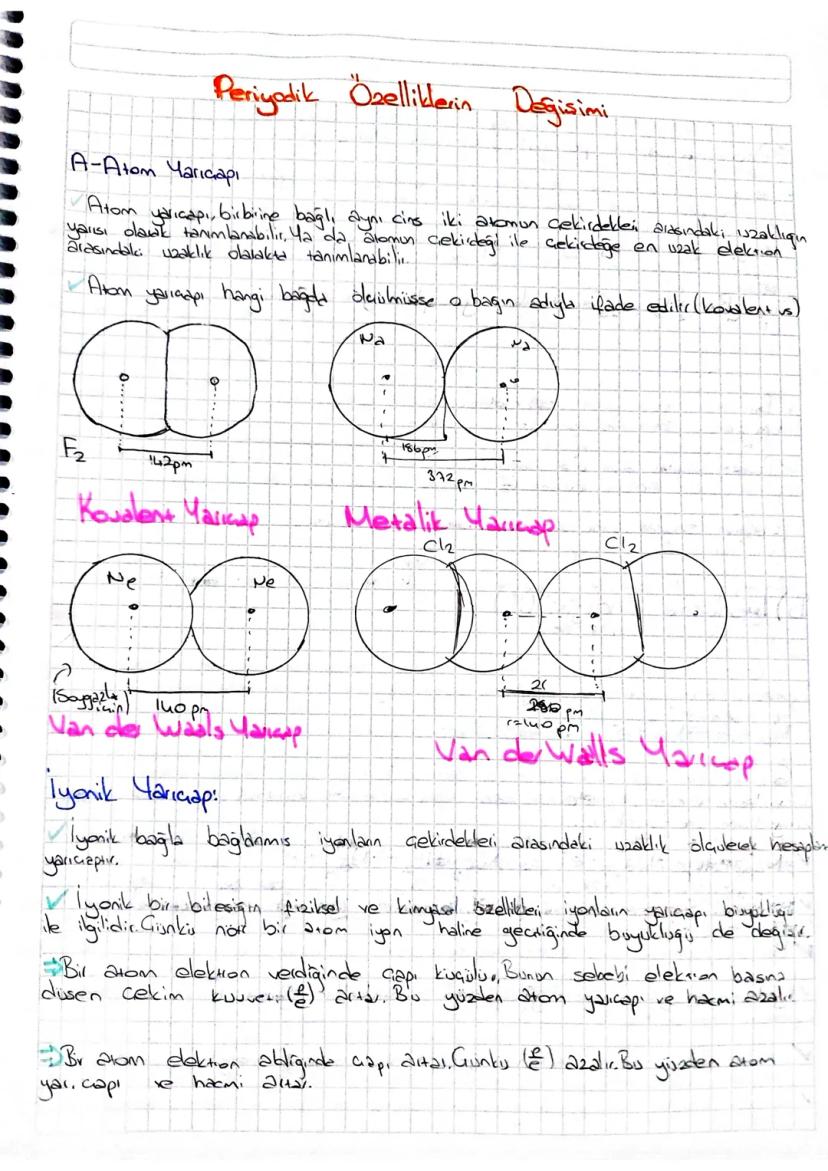 Periyodik Özelliklerin Değişimi
A-Atom Yarıçapı
✓ Atom yarıçapı, birbirine bağlı aynı cins iki atomun çekirdekleri arasındaki uzaklığın
yarısı olarak tanımlanabilir. Ya da atomun çekirdeği ile çekirdeğe en uzak elektron
arasındaki uzaklık olarakta tanımlanabilir.
✓ Atom yarıçapı hangi bağda ölçülmüşse o bağın adıyla ifade edilir (kovalent vs)
Na Na
F2
142pm
186pm
372pm
Kovalent Yarıçap Metalik Yarıçap
Cl2 Cl2
Ne Ne
(Soygazlar için)
140 pm
pm
r=140 pm
Van der Waals Yarıçap
Van der Walls Yarıçap
İyonik Yarıçap:
✓ İyonik bağla bağlanmış iyonların çekirdekleri arasındaki uzaklık ölçülerek
yarıçaptır.
✓ İyonik bir bileşiğin fiziksel ve kimyasal özellikleri iyonların yarıçapı büyüklüğü
ile ilgilidir. Çünkü nötr bir atom iyon haline geçtiğinde büyüklüğü de değişir.
⇒ Bir atom elektron verdiğinde çapı küçülür, Bunun sebebi elektron başına
düşen çekim kuvveti (p/e) artar. Bu yüzden atom yarıçapı ve hacmi azalır.
⇒ Bir atom elektron aldığında çapı artar. Çünkü (p/e) azalır. Bu yüzden atom
yarı. çapı ve hacmi artar.